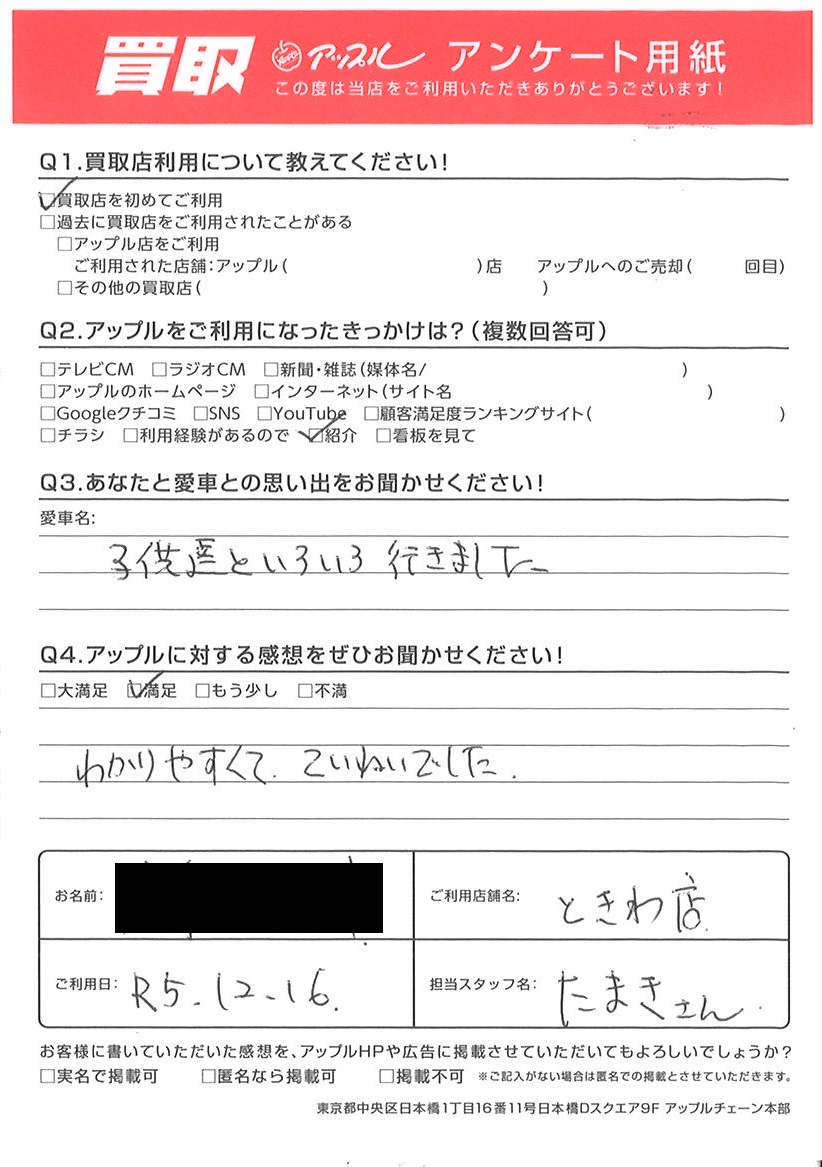 買取 アップル アンケート用紙
この度は当店をご利用いただきありがとうございます!
Q1.買取店利用について教えてください!
☑買取店を初めてご利用
□過去に買取店をご利用されたことがある
□アップル店をご利用
ご利用された店舗:アップル( )店 アップルへのご売却( 回目)
□その他の買取店( )
Q2.アップルをご利用になったきっかけは?(複数回答可)
□テレビCM □ラジオCM □新聞・雑誌(媒体名/ )
□アップルのホームページ □インターネット(サイト名 )
□Googleクチコミ □SNS □YouTube □顧客満足度ランキングサイト( )
□チラシ □利用経験があるので ☑紹介 □看板を見て
Q3.あなたと愛車との思い出をお聞かせください!
愛車名:
子供達といろいろ行きました
Q4.アップルに対する感想をぜひお聞かせください!
□大満足 ☑満足 □もう少し □不満
わかりやすくて、ていねいでした.
お名前:
ご利用店舗名: ときわ店
ご利用日: R5.12.16.
担当スタッフ名: たまきさん
お客様に書いていただいた感想を、アップルHPや広告に掲載させていただいてもよろしいでしょうか?
□実名で掲載可 □匿名なら掲載可 □掲載不可 ※ご記入がない場合は匿名での掲載とさせていただきます。
東京都中央区日本橋1丁目16番11号日本橋Dスクエア9F アップルチェーン本部